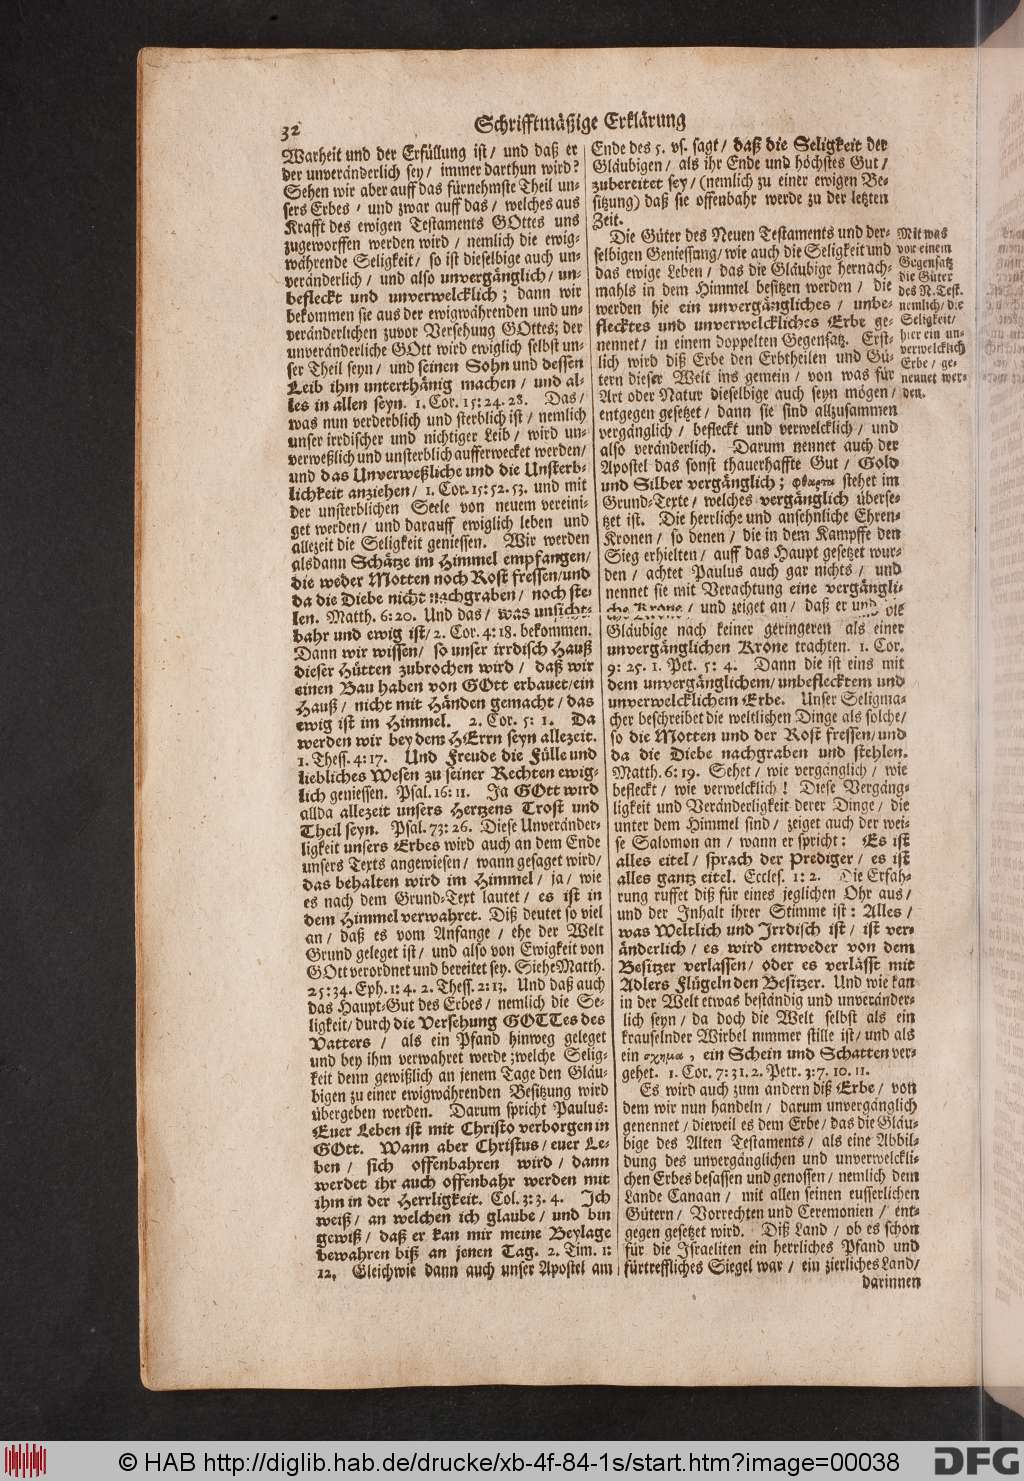 32
Schrifftmäßige Erklärung
Warheit und der Erfüllung ist/ und daß er
der unveränderlich sey/ immer darthun wird?
Sehen wir aber auff das fürnehmste Theil un-
sers Erbes, und zwar auff das/ welches aus
Krafft des ewigen Testaments GOttes uns
zugeworffen werden wird/ nemlich die ewig-
währende Seligkeit/ so ist dieselbige auch un-
veränderlich/ und also unvergänglich/ un-
befleckt und unverwelcklich; dann wir
bekommen sie aus der ewigwährenden und un-
veränderlichen zuvor Versehung GOttes; der
unveränderliche GOtt wird ewiglich selbst un-
ser Theil seyn/ und seinen Sohn und dessen
Leib ihm unterthänig machen/ und al-
les in allen seyn. 1. Cor. 15:24.28. Das/
was nun verderblich und sterblich ist/ nemlich
unser irrdischer und nichtiger Leib/ wird un-
verweßlich und unsterblich aufferwecket werden/
und das Unverweßliche und die Unsterb-
lichkeit anziehen/ 1. Cor. 15:52.53. und mit
der unsterblichen Seele von neuem vereini-
get werden/ und darauff ewiglich leben und
allezeit die Seligkeit geniessen. Wir werden
alsdann Schätze im Himmel empfangen/
die weder Motten noch Rost fressen/und
da die Diebe nicht nachgraben/ noch ste-
len. Matth. 6:20. Und das/ was unsicht-
bahr und ewig ist/ 2. Cor. 4:18. bekommen.
Dann wir wissen/ so unser irrdisch Hauß
dieser Hütten zubrochen wird/ daß wir
einen Bau haben von GOtt erbauet/ein
Hauß/ nicht mit Händen gemacht/ das
ewig ist im Himmel. 2. Cor. 5: 1. Da
werden wir bey dem HErrn seyn allezeit.
1. Thess. 4:17. Und Freude die Fülle und
liebliches Wesen zu seiner Rechten ewig-
lich geniessen. Psal. 16:11. Ja GOtt wird
allda allezeit unsers Hertzens Trost und
Theil seyn. Psal. 73:26. Diese Unveränder-
ligkeit unsers Erbes wird auch an dem Ende
unsers Texts angewiesen/ wann gesaget wird/
das behalten wird im Himmel/ ja/ wie
es nach dem Grund-Text lautet/ es ist in
dem Himmel verwahret. Diß deutet so viel
an/ daß es vom Anfange/ ehe der Welt
Grund geleget ist/ und also von Ewigkeit von
GOtt verordnet und bereitet sey. Siehe Matth.
25:34. Eph. 1:4. 2. Thess. 2:13. Und daß auch
das Haupt-Gut des Erbes/ nemlich die Se-
ligkeit/ durch die Versehung GOTTes des
Vatters/ als ein Pfand hinweg geleget
und bey ihm verwahret werde; welche Selig-
keit denn gewißlich an jenem Tage den Gläu-
bigen zu einer ewigwährenden Besitzung wird
übergeben werden. Darum spricht Paulus:
Euer Leben ist mit Christo verborgen in
GOtt. Wann aber Christus/ euer Le-
ben/ sich offenbahren wird/ dann
werdet ihr auch offenbahr werden mit
ihm in der Herrligkeit. Col. 3:3. 4. Ich
weiß/ an welchen ich glaube/ und bin
gewiß/ daß er kan mir meine Beylage
bewahren biß an jenen Tag. 2. Tim. 1:
12. Gleichwie dann auch unser Apostel am
Ende des 5. vs. sagt/ daß die Seligkeit der
Gläubigen/ als ihr Ende und höchstes Gut/
zubereitet sey/ (nemlich zu einer ewigen Be-
sitzung) daß sie offenbahr werde zu der letzten
Zeit.
Die Güter des Neuen Testaments und der-
selbigen Geniessung/ wie auch die Seligkeit und
das ewige Leben/ das die Gläubige hernach-
mahls in dem Himmel besitzen werden/ die
werden hie ein unvergängliches/ unbe-
flecktes und unverwelckliches Erbe ge-
nennet/ in einem doppelten Gegensatz. Erst-
lich wird diß Erbe den Erbtheilen und Gü-
tern dieser Welt ins gemein/ von was für
Art oder Natur dieselbige auch seyn mögen/
entgegen gesetzet/ dann sie sind allzusammen
vergänglich/ befleckt und verwelcklich/ und
also veränderlich. Darum nennet auch der
Apostel das sonst thauerhaffte Gut/ Gold
und Silber vergänglich; φθαρτα stehet im
Grund-Texte/ welches vergänglich überse-
tzet ist. Die herrliche und ansehnliche Ehren-
Kronen/ so denen/ die in dem Kampffe den
Sieg erhielten/ auff das Haupt gesetzet wur-
den/ achtet Paulus auch gar nichts/ und
nennet sie mit Verachtung eine vergängli-
che Krone/ und zeiget an/ daß er und die
Gläubige nach keiner geringeren als einer
unvergänglichen Krone trachten. 1. Cor.
9: 25. 1. Pet. 5: 4. Dann die ist eins mit
dem unvergänglichem/ unbeflecktem und
unverwelcklichem Erbe. Unser Seligma-
cher beschreibet die weltlichen Dinge als solche/
so die Motten und der Rost fressen/und
da die Diebe nachgraben und stehlen.
Matth. 6:19. Sehet/ wie vergänglich/ wie
befleckt/ wie verwelcklich! Diese Vergäng-
ligkeit und Veränderligkeit derer Dinge/ die
unter dem Himmel sind/ zeiget auch der wei-
se Salomon an/ wann er spricht: Es ist
alles eitel/ sprach der Prediger/ es ist
alles gantz eitel. Eccles. 1:2. Die Erfah-
rung ruffet diß für eines jeglichen Ohr aus/
und der Inhalt ihrer Stimme ist: Alles/
was Weltlich und Irrdisch ist/ ist ver-
änderlich/ es wird entweder von dem
Besitzer verlassen/ oder es verlässt mit
Adlers Flügeln den Besitzer. Und wie kan
in der Welt etwas beständig und unveränder-
lich seyn/ da doch die Welt selbst als ein
krauselnder Wirbel nimmer stille ist/ und als
ein σχημα, ein Schein und Schatten ver-
gehet. 1. Cor. 7:31. 2. Petr. 3:7. 10. 11.
Es wird auch zum andern diß Erbe/ von
dem wir nun handeln/ darum unvergänglich
genennet/ dieweil es dem Erbe/ das die Gläu-
bige des Alten Testaments/ als eine Abbil-
dung des unvergänglichen und unverwelckli-
chen Erbes besassen und genossen/ nemlich dem
Lande Canaan/ mit allen seinen eusserlichen
Gütern/ Vorrechten und Ceremonien/ ent-
gegen gesetzet wird. Diß Land/ ob es schon
für die Israeliten ein herrliches Pfand und
fürtreffliches Siegel war/ ein zierliches Land/
darinnen
Mit was
vor einem
Gegensatz
die Güter
des N. Test.
nemlich/ die
Seligkeit/
hier ein un-
verwelcklich
Erbe/ ge-
nennet wer-
den.
© HAB http://diglib.hab.de/drucke/xb-4f-84-1s/start.htm?image=00038
DFG